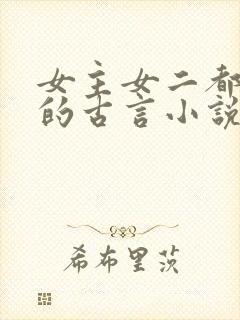 女主女二都
的古言小説
希布里茨